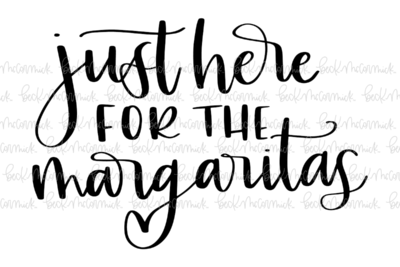 just here
FOR THE
margaritas